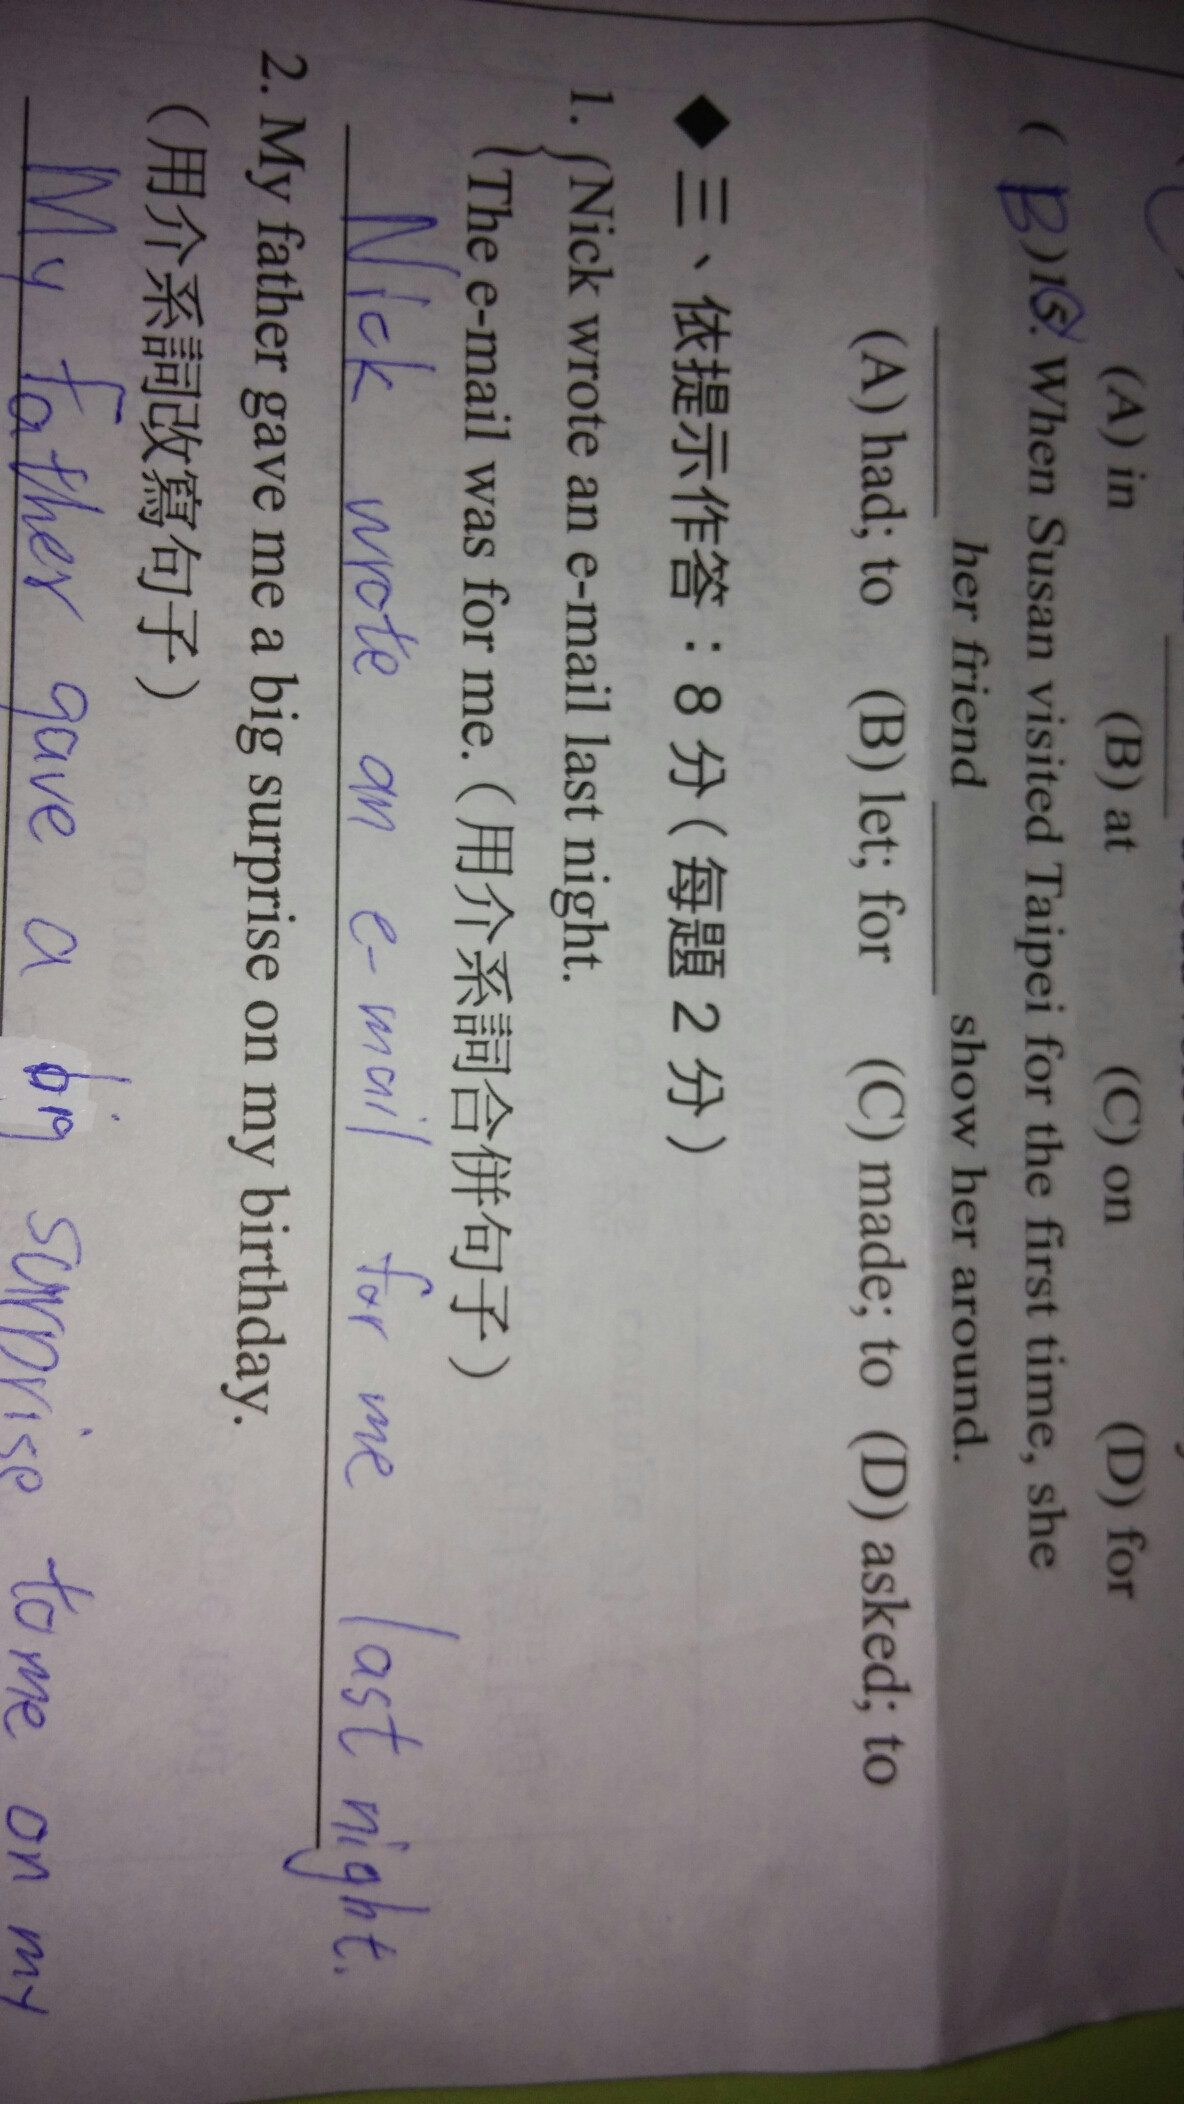 (A) in (B) at (C) on (D) for
( B )15. When Susan visited Taipei for the first time, she
______ her friend ______ show her around.
(A) had; to (B) let; for (C) made; to (D) asked; to
◆ 三、依提示作答：8 分（每題 2 分）
1. Nick wrote an e-mail last night.
The e-mail was for me.（用介系詞合併句子）
Nick wrote an e-mail for me last night.
2. My father gave me a big surprise on my birthday.
（用介系詞改寫句子）
My father gave a big surprise to me on my